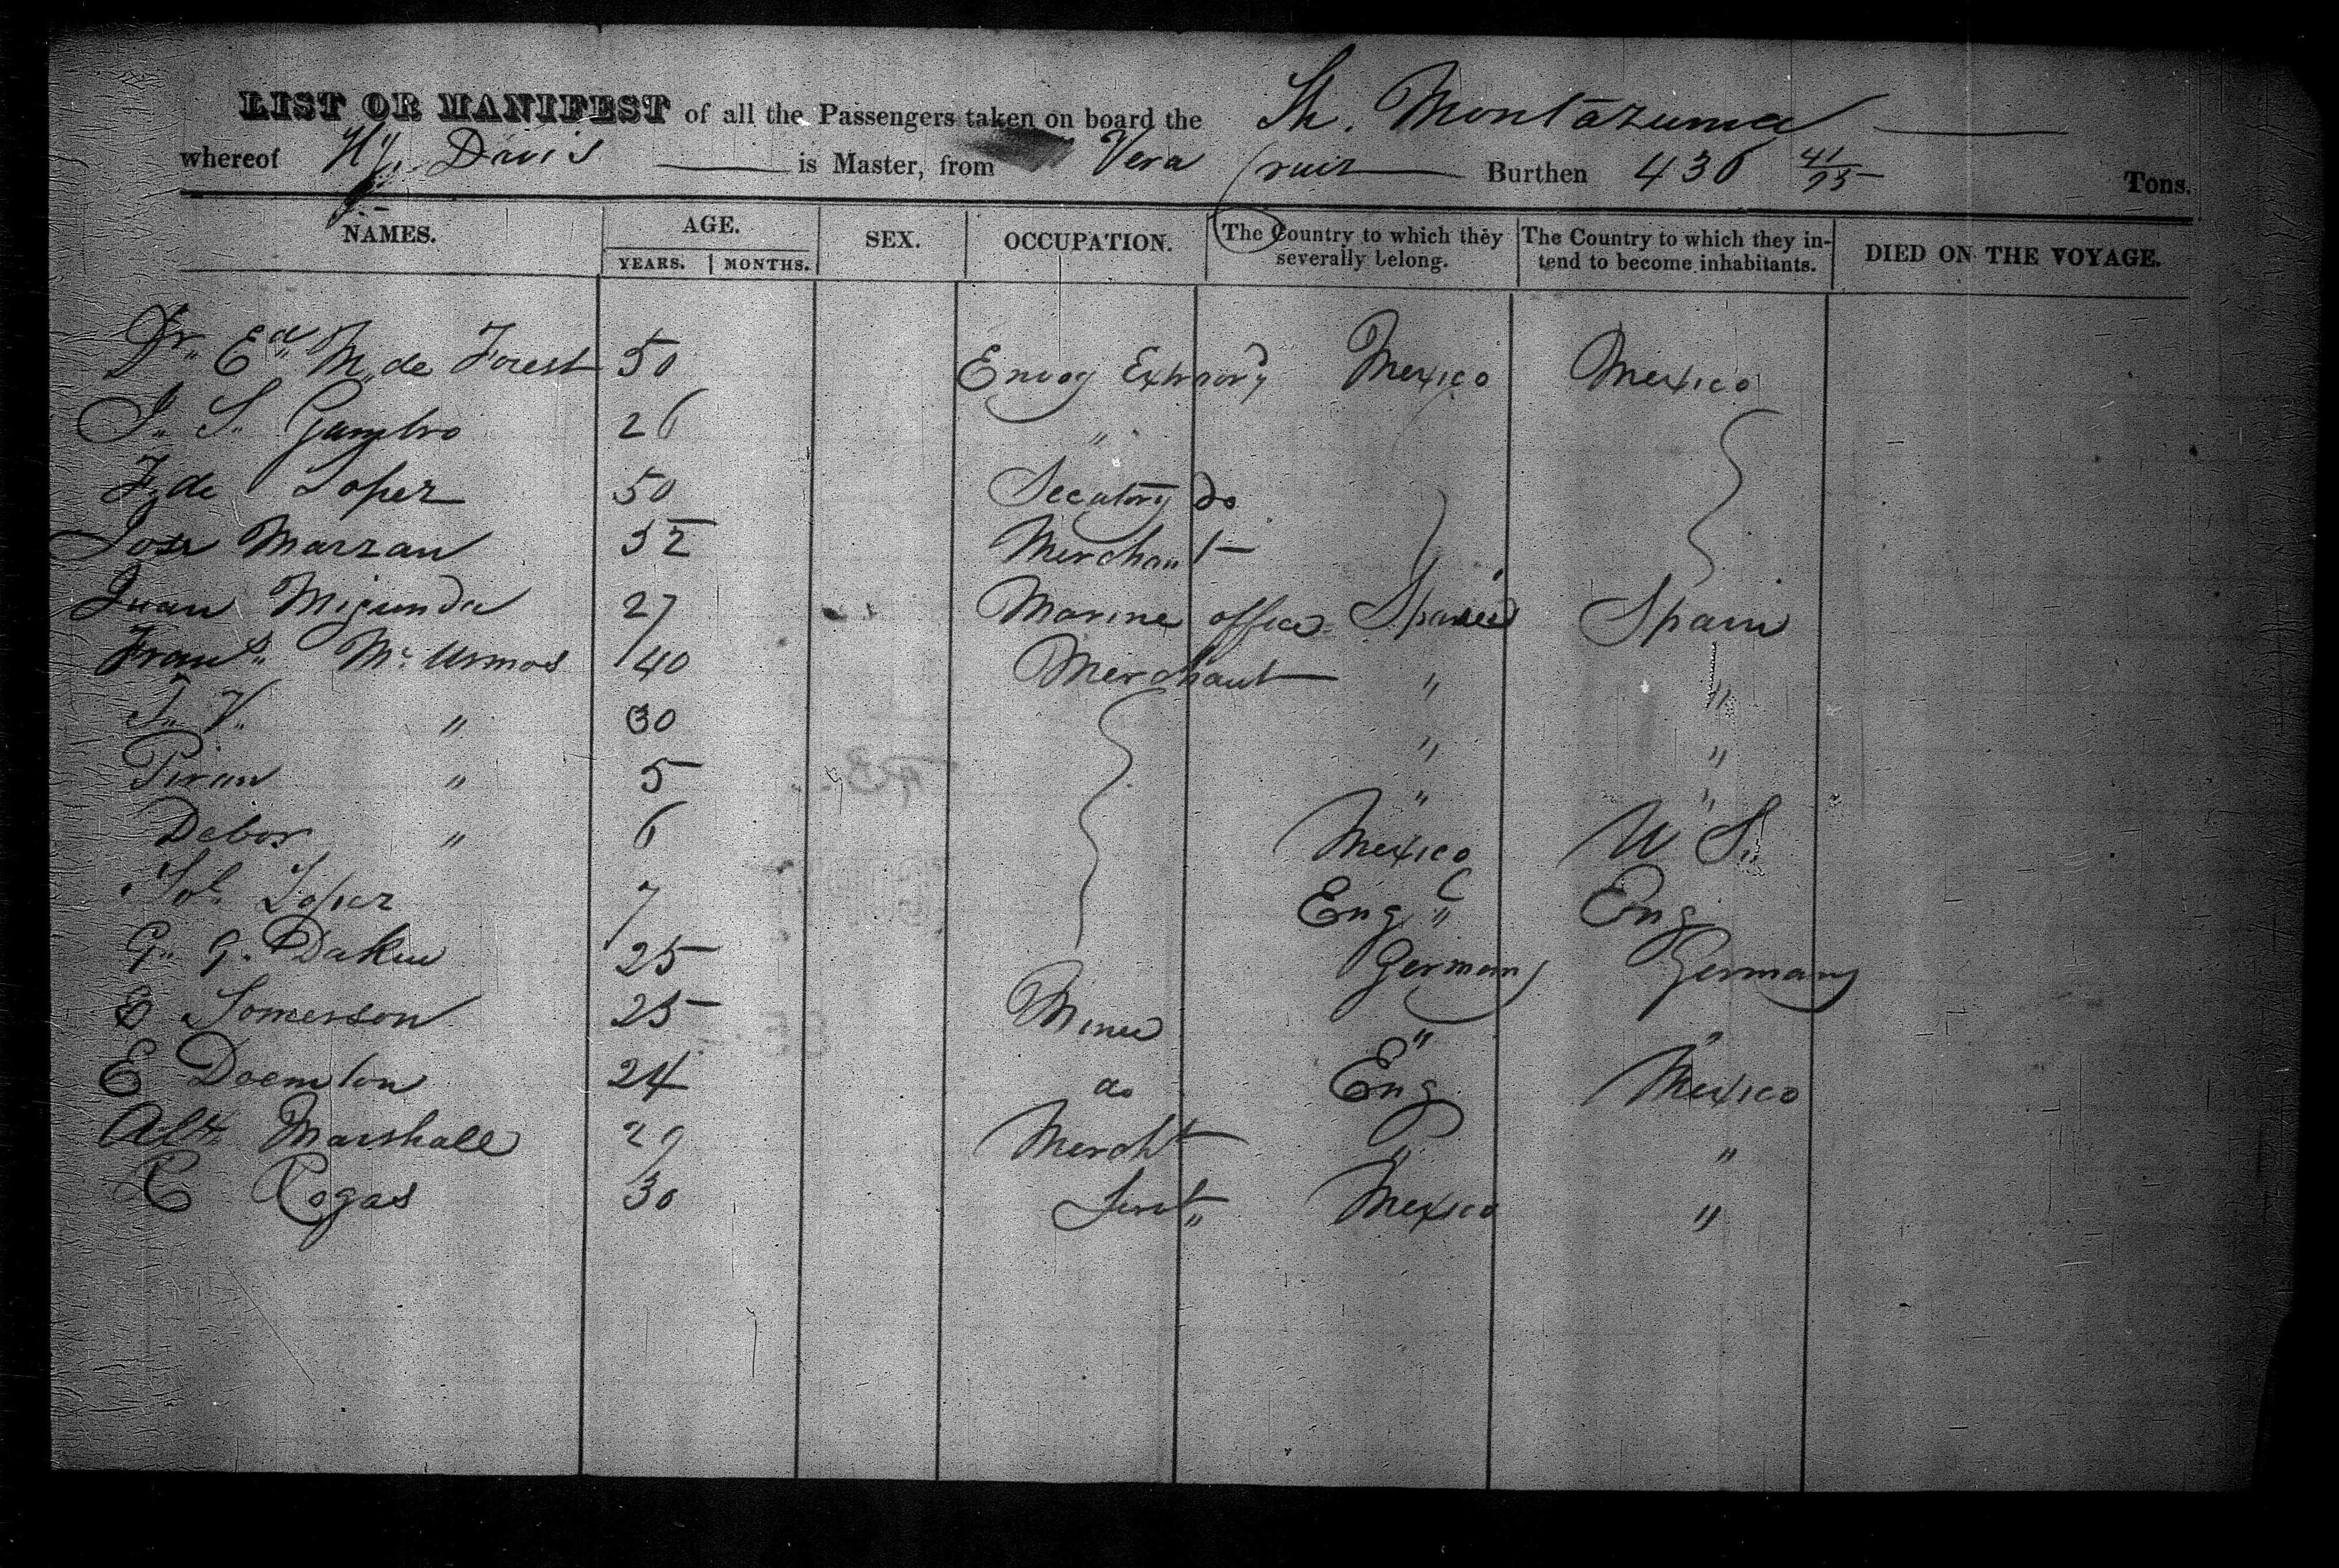 LIST OR MANIFEST of all the Passengers taken on board the Sh. Montazuma
whereof Davis is Master, from Vera Cruiz Burthen 436 41/95 Tons.
NAMES. AGE. SEX. OCCUPATION. The Country to which they severally belong. The Country to which they intend to become inhabitants. DIED ON THE VOYAGE.
YEARS. MONTHS.
Dr. Ed M. de Forest 50 Envoy Extraory Mexico Mexico
J. S. 26 "
F. de Lopez 50 Secatory Do
Jose Marzan 32 Merchant
Juan Mijunda 27 Marine officer Spain Spain
Frans. 40 Merchant " "
J. V. " 30 " "
" 5 " "
" 6 Mexico U S.
Lopez 7 Eng " Eng
G. G. Dakin 25 Germany Germany
Somerson 25 Miner " "
E 24 do Eng Mexico
Alx Marshall 29 Mercht " "
Rogas 30 Servt " Mexico "